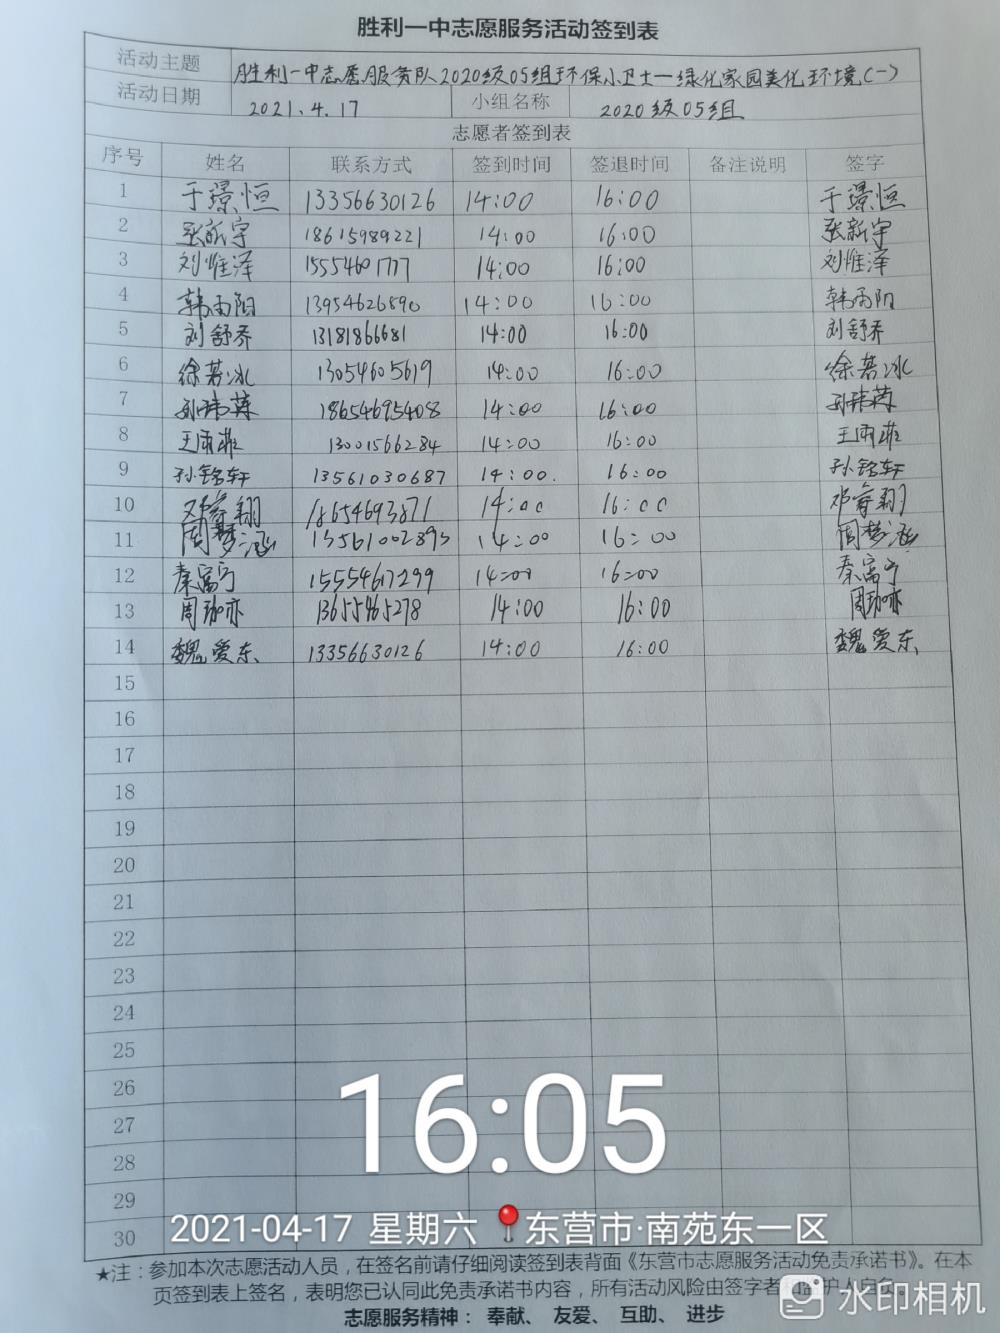 胜利一中志愿服务活动签到表
活动主题 胜利一中志愿服务队2020级05组环保小卫士—绿化家园美化环境(一)
活动日期 2021.4.17 小组名称 2020级05组
志愿者签到表
序号 姓名 联系方式 签到时间 签退时间 备注说明 签字
1 于璟恒 13356630126 14:00 16:00 于璟恒
2 张新宇 18615989221 14:00 16:00 张新宇
3 刘惟泽 15554601777 14:00 16:00 刘惟泽
4 韩雨阳 13954626890 14:00 16:00 韩雨阳
5 刘舒乔 13181866681 14:00 16:00 刘舒乔
6 徐若冰 13054605619 14:00 16:00 徐若冰
7 孙玮英 18654695408 14:00 16:00 孙玮英
8 王雨菲 13001566284 14:00 16:00 王雨菲
9 孙铭轩 13561030687 14:00. 16:00 孙铭轩
10 邓睿翔 18654693871 14:00 16:00 邓睿翔
11 周梦涵 13561002893 14:00 16:00 周梦涵
12 秦富宁 15554617299 14:00 16:00 秦富宁
13 周珈亦 13655465278 14:00 16:00 周珈亦
14 魏爱东 13356630126 14:00 16:00 魏爱东
15
16
17
18
19
20
21
22
23
24
25
26
27
28
29
30
16:05
2021-04-17 星期六 东营市·南苑东一区
★注：参加本次志愿活动人员，在签名前请仔细阅读签到表背面《东营市志愿服务活动免责承诺书》。在本
页签到表上签名，表明您已认同此免责承诺书内容，所有活动风险由签字者和监护人自负。
志愿服务精神： 奉献、 友爱、 互助、 进步
水印相机